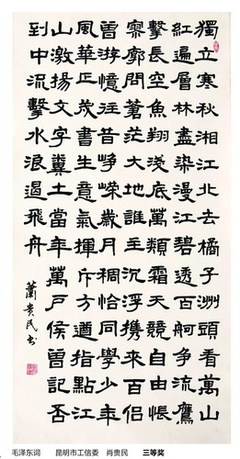 獨立寒秋湘江北去橘子洲頭看萬山
紅遍層林盡染漫江碧透百舸爭流鷹
擊長空魚翔淺底萬類霜天競自由悵
寥廓問蒼茫大地誰主沉浮攜來百侣
曾游憶往昔崢嶸歲月稠恰同學少年
風華正茂書生意氣揮斥方遒指點江
山激揚文字糞土當年萬戶侯曾記否
到中流擊水浪遏飛舟
蕭貴民书
毛泽东词 昆明市工信委 肖贵民 三等奖